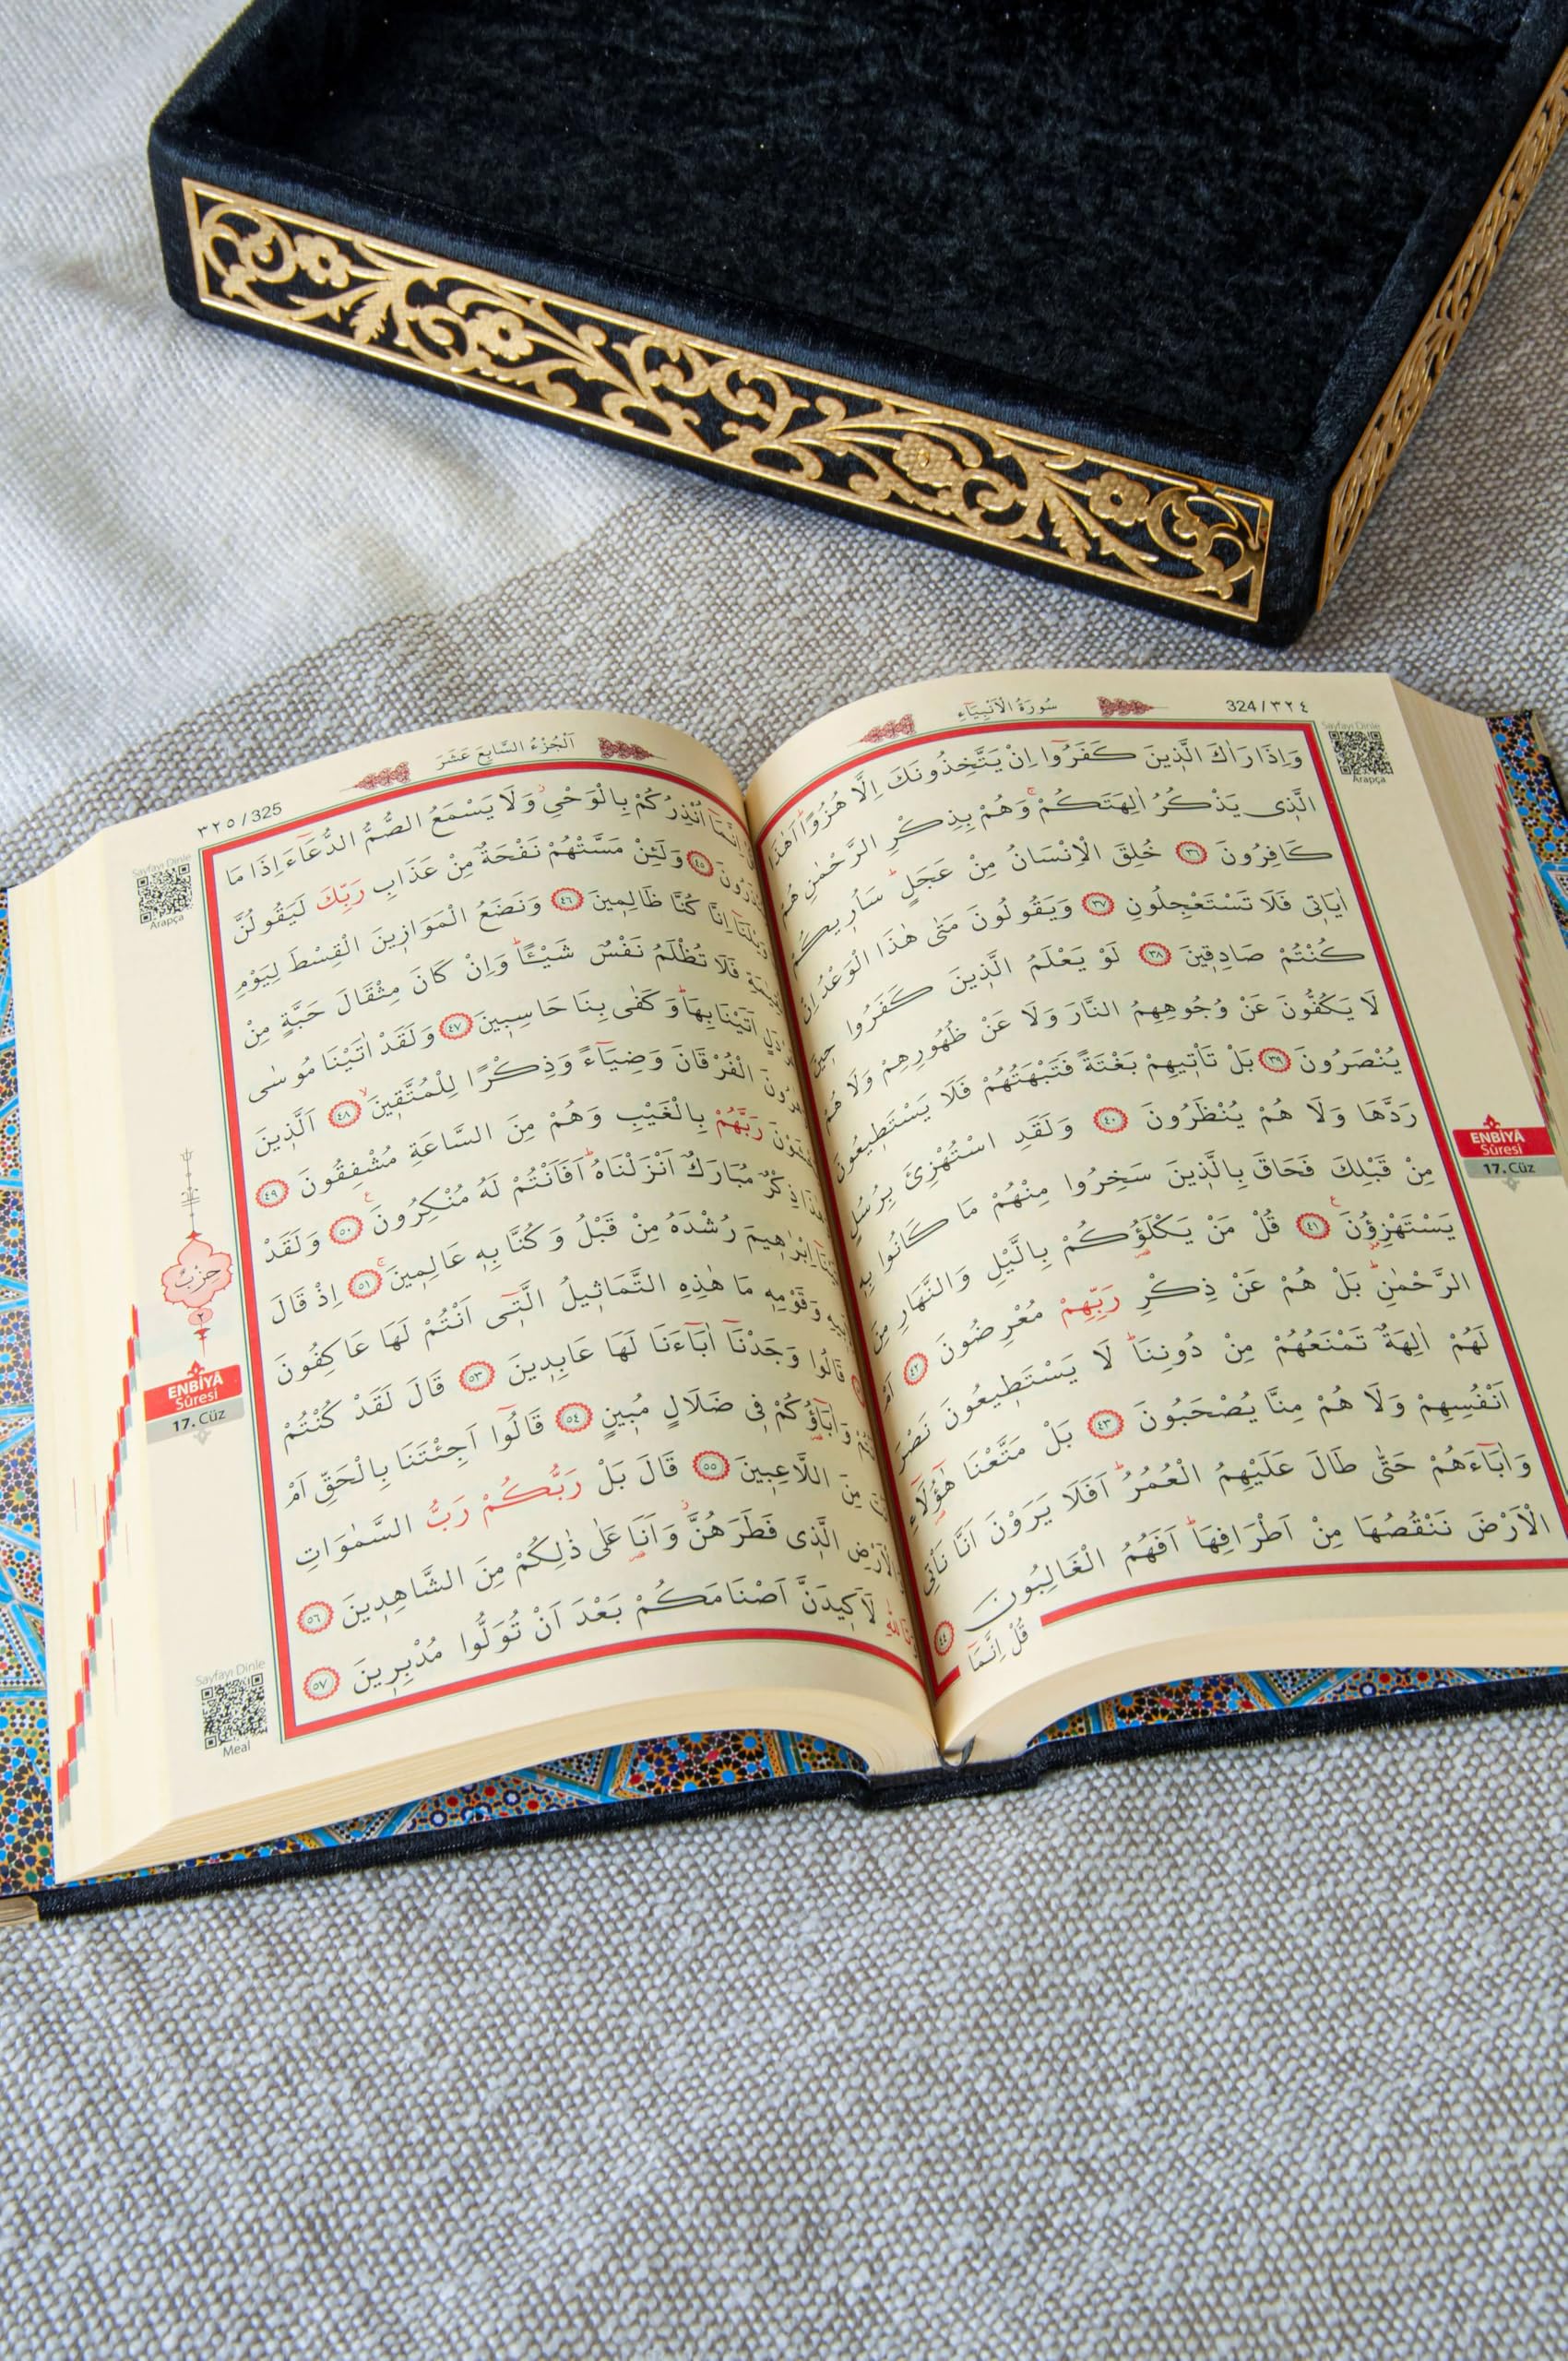 سُورَةُ الْاَنْبِيَاءِ
324 / ٣٢٤
Sayfayı Dinle
Arapça
وَاِذَا رَاٰكَ الَّذ۪ينَ كَفَرُٓوا اِنْ يَتَّخِذُونَكَ اِلَّا هُزُوًاۜ اَهٰذَا
الَّذ۪ي يَذْكُرُ اٰلِهَتَكُمْۚ وَهُمْ بِذِكْرِ الرَّحْمٰنِ هُمْ
كَافِرُونَ ﴿٣٦﴾ خُلِقَ الْاِنْسَانُ مِنْ عَجَلٍۜ سَاُر۪يكُمْ
اٰيَات۪ي فَلَا تَسْتَعْجِلُونِ ﴿٣٧﴾ وَيَقُولُونَ مَتٰى هٰذَا الْوَعْدُ اِنْ
كُنْتُمْ صَادِق۪ينَ ﴿٣٨﴾ لَوْ يَعْلَمُ الَّذ۪ينَ كَفَرُوا ح۪ينَ
لَا يَكُفُّونَ عَنْ وُجُوهِهِمُ النَّارَ وَلَا عَنْ ظُهُورِهِمْ وَلَا هُمْ
يُنْصَرُونَ ﴿٣٩﴾ بَلْ تَأْت۪يهِمْ بَغْتَةً فَتَبْهَتُهُمْ فَلَا يَسْتَط۪يعُونَ
رَدَّهَا وَلَا هُمْ يُنْظَرُونَ ﴿٤٠﴾ وَلَقَدِ اسْتُهْزِئَ بِرُسُلٍ
مِنْ قَبْلِكَ فَحَاقَ بِالَّذ۪ينَ سَخِرُوا مِنْهُمْ مَا كَانُوا بِه۪
يَسْتَهْزِؤُ۫نَ۟ ﴿٤١﴾ قُلْ مَنْ يَكْلَؤُ۬كُمْ بِالَّيْلِ وَالنَّهَارِ مِنَ
الرَّحْمٰنِۜ بَلْ هُمْ عَنْ ذِكْرِ رَبِّهِمْ مُعْرِضُونَ ﴿٤٢﴾ اَمْ
لَهُمْ اٰلِهَةٌ تَمْنَعُهُمْ مِنْ دُونِنَاۜ لَا يَسْتَط۪يعُونَ نَصْرَ
اَنْفُسِهِمْ وَلَا هُمْ مِنَّا يُصْحَبُونَ ﴿٤٣﴾ بَلْ مَتَّعْنَا هٰٓؤُ۬لَٓاءِ
وَاٰبَٓاءَهُمْ حَتّٰى طَالَ عَلَيْهِمُ الْعُمُرُۜ اَفَلَا يَرَوْنَ اَنَّا نَأْتِي
الْاَرْضَ نَنْقُصُهَا مِنْ اَطْرَافِهَاۜ اَفَهُمُ الْغَالِبُونَ ﴿٤٤﴾
قُلْ اِنَّمَٓا
ENBİYÂ
Sûresi
17. Cüz
اَلْجُزْءُ السَّابِعَ عَشَرَ
٣٢٥ / 325
Sayfayı Dinle
Arapça
اِنَّمَٓا اُنْذِرُكُمْ بِالْوَحْيِۘ وَلَا يَسْمَعُ الصُّمُّ الدُّعَٓاءَ اِذَا مَا
﴿٤٥﴾ وَلَئِنْ مَسَّتْهُمْ نَفْحَةٌ مِنْ عَذَابِ رَبِّكَ لَيَقُولُنَّ
اِنَّا كُنَّا ظَالِم۪ينَ ﴿٤٦﴾ وَنَضَعُ الْمَوَاز۪ينَ الْقِسْطَ لِيَوْمِ
فَلَا تُظْلَمُ نَفْسٌ شَيْـًٔاۜ وَاِنْ كَانَ مِثْقَالَ حَبَّةٍ مِنْ
اَتَيْنَا بِهَاۜ وَكَفٰى بِنَا حَاسِب۪ينَ ﴿٤٧﴾ وَلَقَدْ اٰتَيْنَا مُوسٰى
الْفُرْقَانَ وَضِيَٓاءً وَذِكْرًا لِلْمُتَّق۪ينَۙ ﴿٤٨﴾ اَلَّذ۪ينَ
رَبَّهُمْ بِالْغَيْبِ وَهُمْ مِنَ السَّاعَةِ مُشْفِقُونَ ﴿٤٩﴾
ذِكْرٌ مُبَارَكٌ اَنْزَلْنَاهُۜ اَفَاَنْتُمْ لَهُ مُنْكِرُونَ۟ ﴿٥٠﴾ وَلَقَدْ
اِبْرٰه۪يمَ رُشْدَهُ مِنْ قَبْلُ وَكُنَّا بِه۪ عَالِم۪ينَۚ ﴿٥١﴾ اِذْ قَالَ
وَقَوْمِه۪ مَا هٰذِهِ التَّمَاث۪يلُ الَّت۪ٓي اَنْتُمْ لَهَا عَاكِفُونَ
قَالُوا وَجَدْنَٓا اٰبَٓاءَنَا لَهَا عَابِد۪ينَ ﴿٥٣﴾ قَالَ لَقَدْ كُنْتُمْ
وَاٰبَٓاؤُ۬كُمْ ف۪ي ضَلَالٍ مُب۪ينٍ ﴿٥٤﴾ قَالُٓوا اَجِئْتَنَا بِالْحَقِّ اَمْ
مِنَ اللَّاعِب۪ينَ ﴿٥٥﴾ قَالَ بَلْ رَبُّكُمْ رَبُّ السَّمٰوَاتِ
الَّذ۪ي فَطَرَهُنَّۘ وَاَنَا۬ عَلٰى ذٰلِكُمْ مِنَ الشَّاهِد۪ينَ ﴿٥٦﴾
لَاَك۪يدَنَّ اَصْنَامَكُمْ بَعْدَ اَنْ تُوَلُّوا مُدْبِر۪ينَ ﴿٥٧﴾
حِزْبٌ
٢
ENBİYÂ
Sûresi
17. Cüz
Sayfayı Dinle
Meal